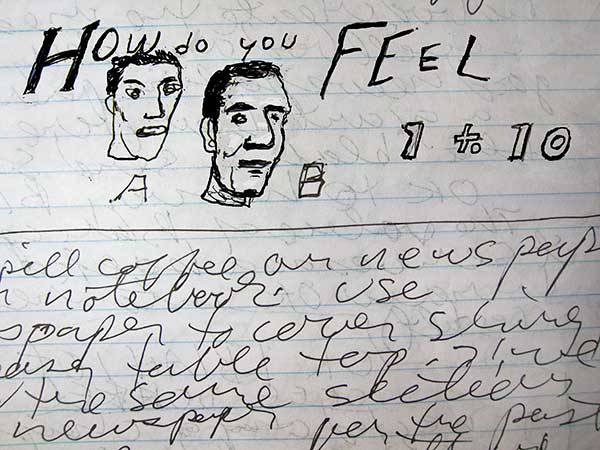 HOW do you FEEL
1 to 10
A B
spill coffee on newspap
notebook. use
spaper to cover
table top.
the same
newspaper for the past